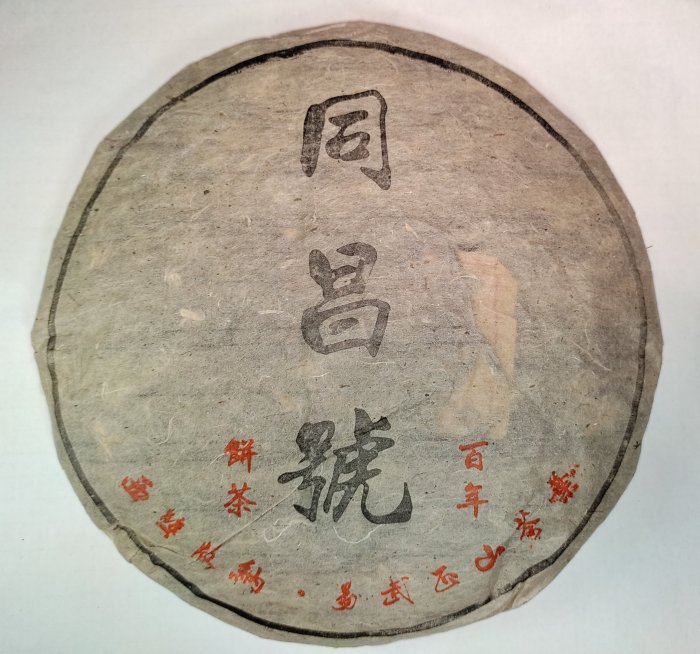 同昌號
百年
餅茶
易武正山茶